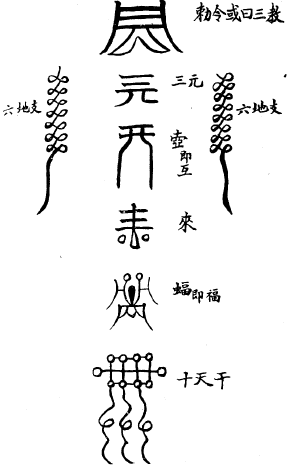 勅令或曰三教
三元
六地支
六地支
壺即互
來
蝠即福
十天干